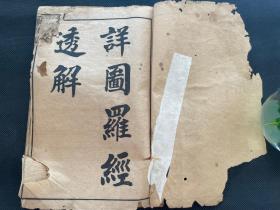 詳圖羅經
透解